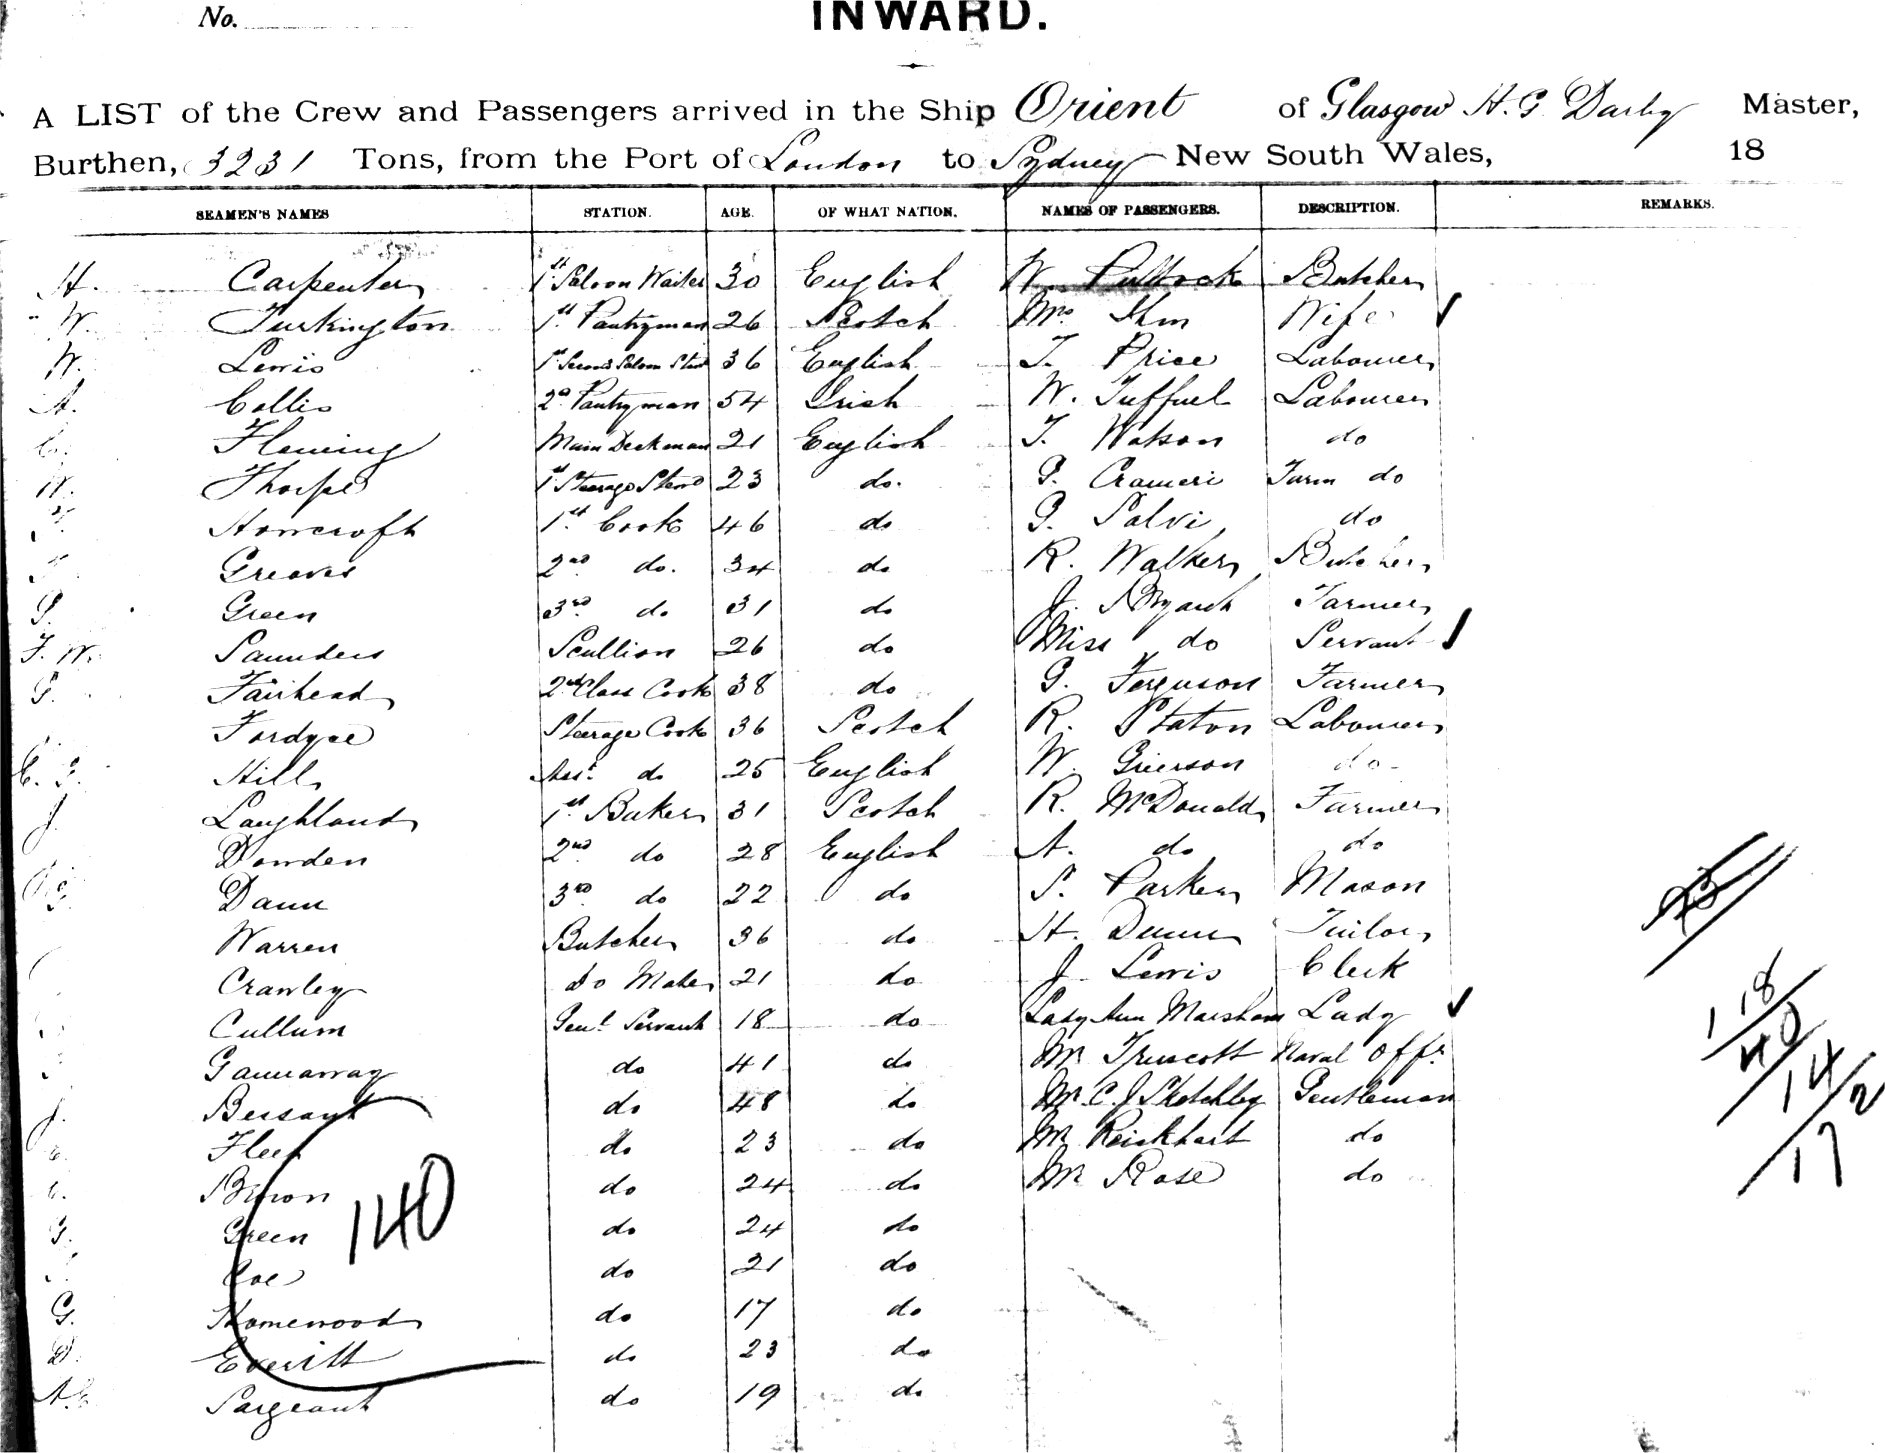 No.
INWARD.
A LIST of the Crew and Passengers arrived in the Ship Orient of Glasgow H. G. Darby Master,
Burthen, 3231 Tons, from the Port of London to Sydney New South Wales, 18
SEAMEN'S NAMES STATION. AGE. OF WHAT NATION. NAMES OF PASSENGERS. DESCRIPTION. REMARKS.
H. Carpenter 1st Saloon Waiter 30 English W. Pullock Butcher
W. Turkington 1st Pantryman 26 Scotch Mrs Ihm Wife
W. Lewis 1st Second Saloon Stwd 36 English T. Price Labourer
A. Collis 2nd Pantryman 54 Irish W. Tuffuel Labourer
C. Fleming Main Deckman 21 English T. Watson do
W. Thorpe 1st Steerage Stewd 23 do. G. Crameri Farm do
Howcroft 1st Cook 46 do G. Salvi do
Greaves 2nd do. 34 do R. Walker Butcher
G. Green 3rd do 31 do J. Bryant Farmer
F. W. Saunders Scullion 26 do Miss do Servant
G. Fairhead 2nd Class Cook 38 do G. Ferguson Farmer
Fordyce Steerage Cook 36 Scotch R. Staton Labourer
C. G. Hill Asst do 25 English W. Grierson do
J. Laughland 1st Baker 31 Scotch R. McDonald Farmer
Dowden 2nd do 28 English A. do do
Dann 3rd do 22 do S. Parker Mason
Warren Butcher 36 do H. Dunn Tailor
Crawley do Mate 21 do J. Lewis Clerk
Cullum Genl Servant 18 do Lady Ann Marsham Lady
Gannaway do 41 do Mr. Truscott Naval Offr.
J. Bessant do 48 do Mr. C. J. Sketchley Gentleman
Fleet do 23 do Mr Reickhart do
C. Brison do 24 do Mr Rose do
G. Green do 24 do
Coe do 21 do
G. Homewood do 17 do
D. Everitt do 23 do
A. Sargeant do 19 do
140
118
40
14
172